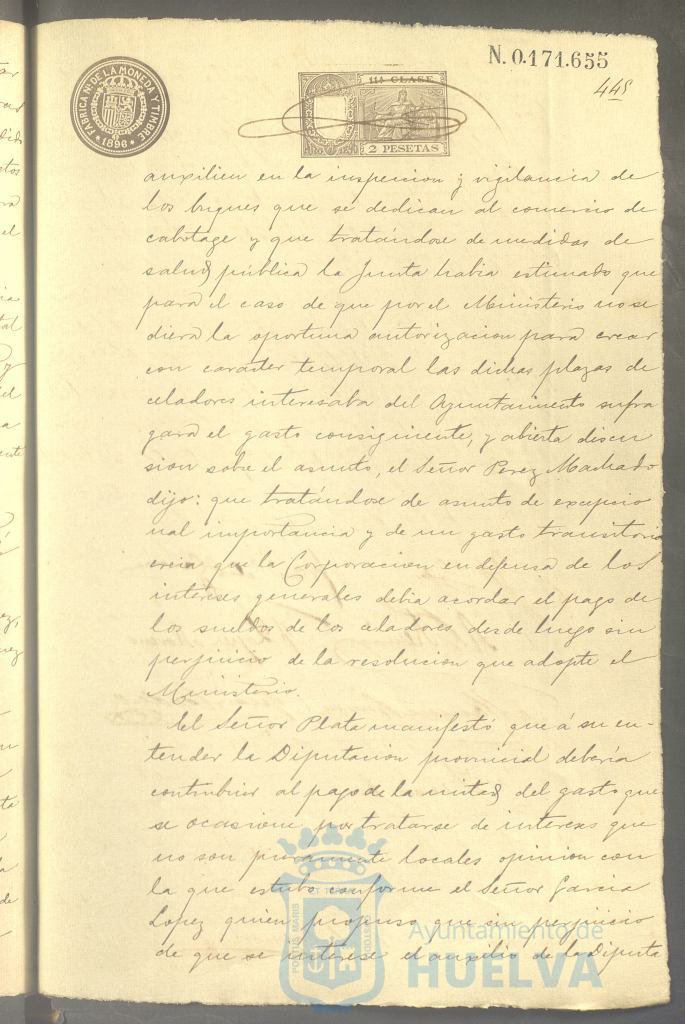 N. 0.171.655
445
FABRICA NL. DE LA MONEDA Y TIMBRE
* 1896 *
11ª CLASE
2 PESETAS
auxilien en la inspeccion y vigilancia de
los buques que se dedican al comercio de
cabotage y que tratándose de medidas de
salud pública la Junta habia estimado que
para el caso de que por el Ministerio no se
diera la oportuna autorizacion para crear
con caracter temporal las dichas plazas de
celadores interesaba del Ayuntamiento sufra
gara el gasto consiguiente, y abierta discu
sion sobre el asunto, el Señor Perez Machado
dijo: que tratándose de asunto de excepcio
nal importancia y de un gasto transitorio
creia que la Corporacion en defensa de los
intereses generales debia acordar el pago de
los sueldos de los celadores desde luego sin
perjuicio de la resolucion que adopte el
Ministerio.
El Señor Plata manifestó que á su en-
tender la Diputacion provincial deberia
contribuir al pago de la mitad del gasto que
se ocasione por tratarse de intereses que
no son puramente locales opinion con
la que estubo conforme el Señor Garcia
Lopez quien propuso que sin perjuicio
de que se interese el auxilio de la Diputa
PORTUS MARIS ET TERRAE CUSTODIA
Ayuntamiento de
HUELVA